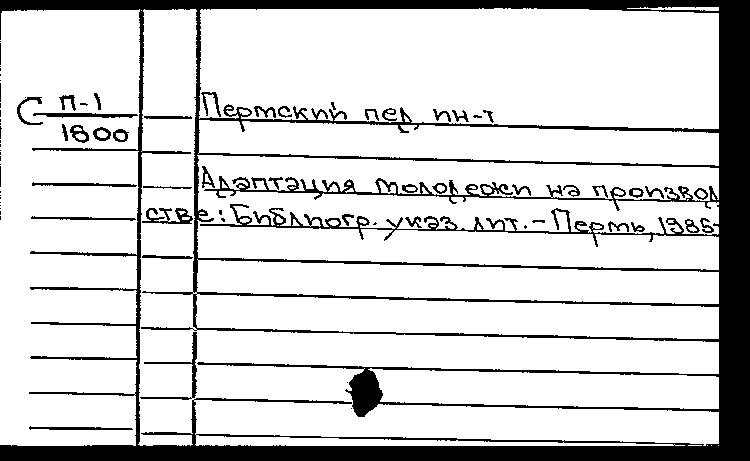 С П-1
1800
Пермский пед. ин-т
Адаптация молодежи на производ
стве: Библиогр. указ. лит. - Пермь, 1985-